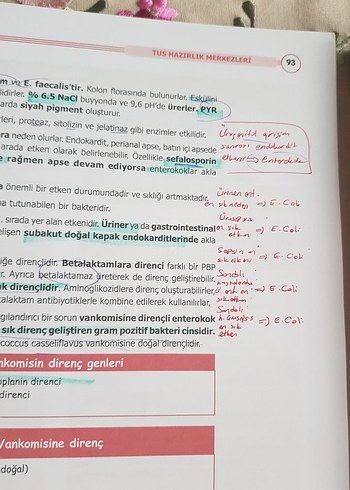 TUS HAZIRLIK MERKEZLERİ
93
m ve E. faecalis'tir. Kolon florasında bulunurlar. Eskülini
lidirler. % 6.5 NaCl buyyonda ve 9,6 pH'de ürerler. PYR
arda siyah pigment oluşturur.
leri, proteaz, sitolizin ve jelatinaz gibi enzimler etkilidir.
ra neden olurlar. Endokardit, perianal apse, batın içi apsede
arada etken olarak belirlenebilir. Özellikle sefalosporin
e rağmen apse devam ediyorsa enterokoklar akla
Ürogenital girişim
sonrası endokardit
etkeni => Enterokok
a önemli bir etken durumundadır ve sıklığı artmaktadır.
a tutunabilen bir bakteridir.
. sırada yer alan etkenidir. Üriner ya da gastrointestinal
elişen subakut doğal kapak endokarditlerinde akla
Üriner enf.
en sık neden => E. Coli
en sık
etken => E. Coli
Sepsisin
sık etkeni => E. Coli
iğe dirençlidir. Betalaktamlara direnci farklı bir PBP
r. Ayrıca betalaktamaz üreterek de direnç geliştirebilir.
ık dirençlidir. Aminoglikozidlere direnç oluşturabilirler,
talaktam antibiyotiklerle kombine edilerek kullanılırlar.
Sondalı
hastalarda
ü. enf. en => E. Coli
sık etken
gılandırıcı bir sorun vankomisine dirençli enterokok
sık direnç geliştiren gram pozitif bakteri cinsidir.
coccus casseliflavus vankomisine doğal dirençlidir.
Sondalı
h. ürosepsis => E. Coli
en sık
etken
nkomisin direnç genleri
oplanin direnci
direnci
Vankomisine direnç
doğal)